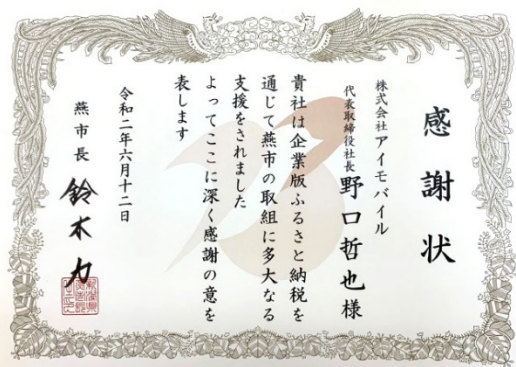 感謝状
株式会社アイモバイル
代表取締役社長 野口哲也様
貴社は企業版ふるさと納税を
通じて燕市の取組に多大なる
支援をされました
よってここに深く感謝の意を
表します
令和二年六月十二日
燕市長 鈴木力